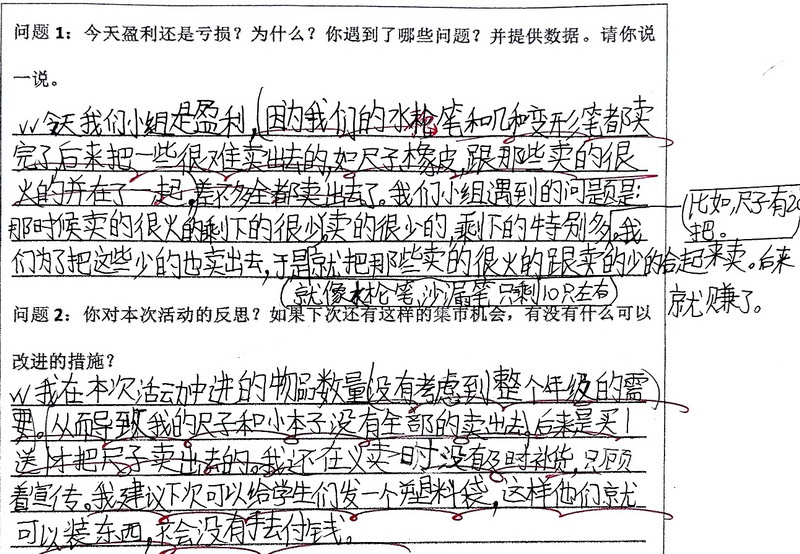 问题 1：今天盈利还是亏损？为什么？你遇到了哪些问题？并提供数据。请你说
一说。
今天我们小组是盈利，(因为我们的水枪笔和几种变形笔都卖
完了，后来把一些很难卖出去的，如尺子，橡皮，跟那些卖的很
火的并在了一起，差不多全都卖出去了。我们小组遇到的问题是：
那时候卖的很火的剩下的很少，卖的很少的，剩下的特别多。我
(比如，尺子有20
把。
们为了把这些少的也卖出去，于是就把那些卖的很火的跟卖的少的合起来卖。后来
就赚了。
(就像水枪笔，沙漏笔只剩10只左右)
问题 2：你对本次活动的反思？如果下次还有这样的集市机会，有没有什么可以
改进的措施？
我在本次活动中进的物品数量(没有考虑到整个年级的需
要。)从而导致我的尺子和小本子没有全部的卖出去，后来是买1
送1才把尺子卖出去的。我还在义卖时没有及时补货，只顾
着宣传。我建议下次可以给学生们发一个塑料袋，这样他们就
可以装东西，不会没有手去付钱。